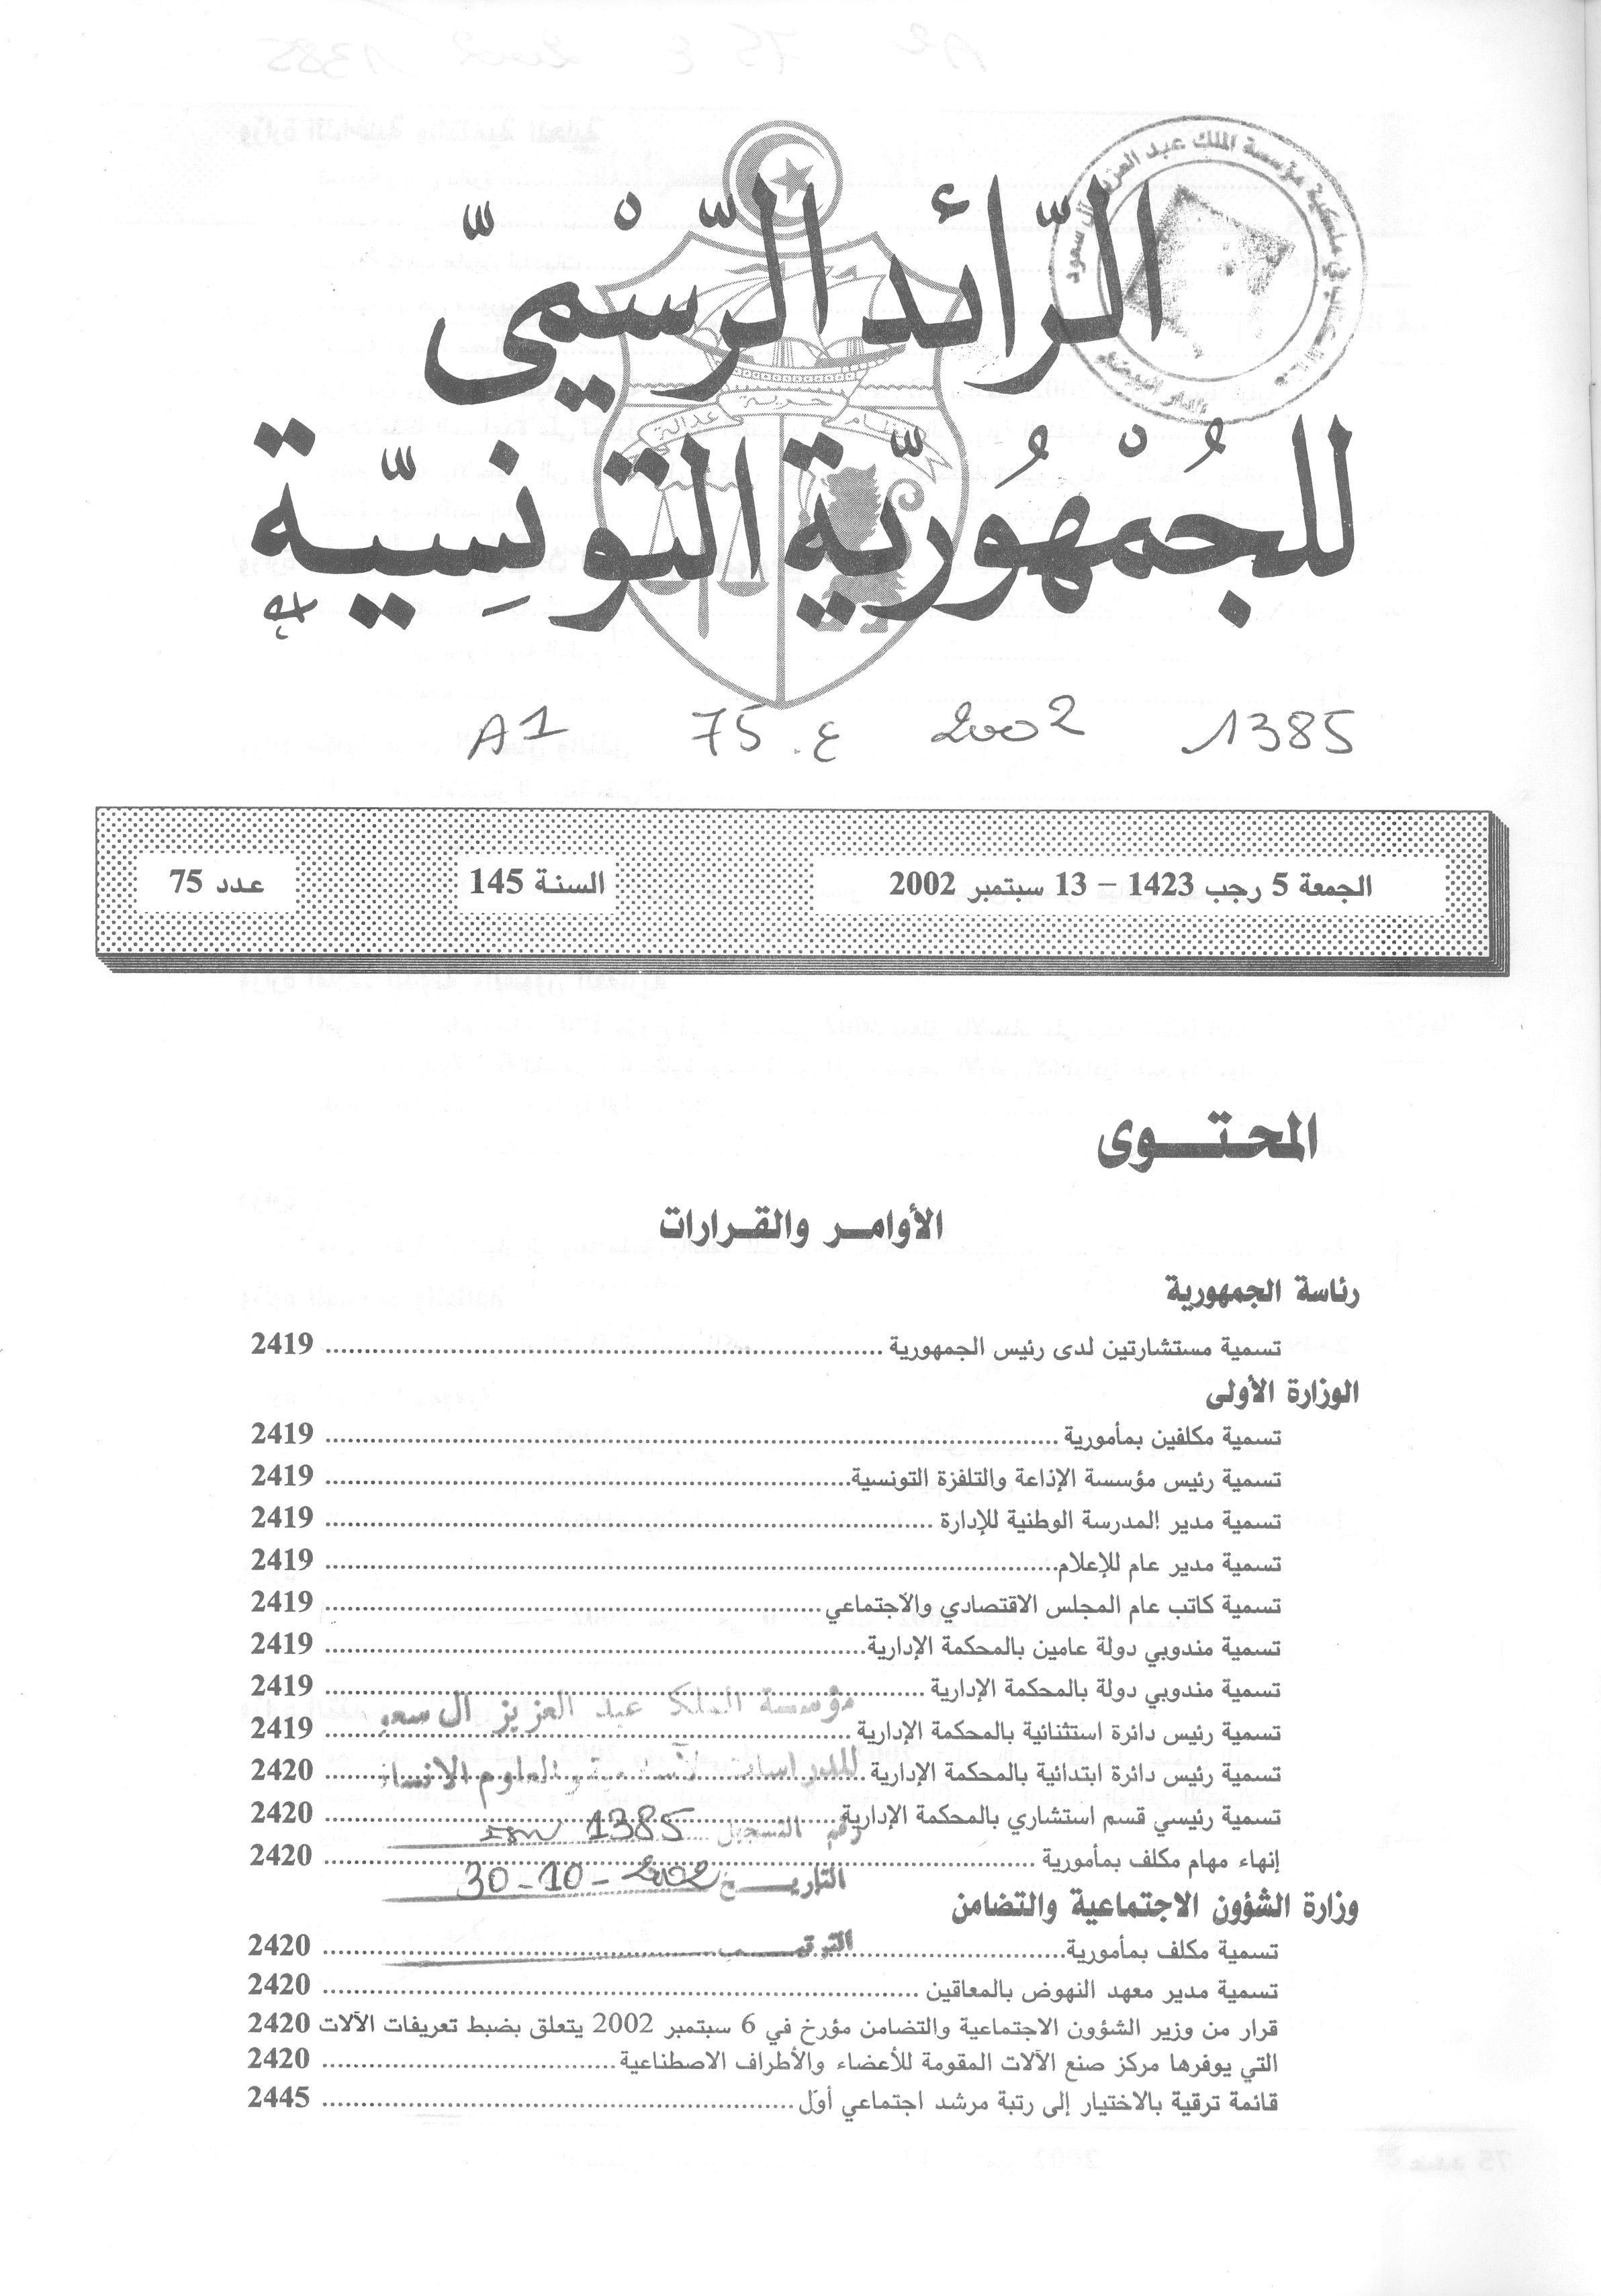 الرّائد الرّسْميّ
للجُمْهُوريّة التّونِسِيّة
نظام حرية عدالة
مؤسسة الملك عبد العزيز آل سعود
الدار البيضاء
A1 75 ع. 2002 1385
الجمعة 5 رجب 1423 – 13 سبتمبر 2002 السنة 145 عدد 75
المحتوى
الأوامر والقرارات
رئاسة الجمهورية
تسمية مستشارتين لدى رئيس الجمهورية 2419
الوزارة الأولى
تسمية مكلفين بمأمورية 2419
تسمية رئيس مؤسسة الإذاعة والتلفزة التونسية 2419
تسمية مدير المدرسة الوطنية للإدارة 2419
تسمية مدير عام للإعلام 2419
تسمية كاتب عام المجلس الاقتصادي والاجتماعي 2419
تسمية مندوبي دولة عامين بالمحكمة الإدارية 2419
تسمية مندوبي دولة بالمحكمة الإدارية 2419
مؤسسة الملك عبد العزيز آل سعو
تسمية رئيس دائرة استثنائية بالمحكمة الإدارية 2419
تسمية رئيس دائرة ابتدائية بالمحكمة الإدارية 2420
للدراسات الاسلامية والعلوم الانسا
تسمية رئيسي قسم استشاري بالمحكمة الإدارية 2420
رقم التسجيل 1385
إنهاء مهام مكلف بمأمورية 2420
التاريخ 30-10-2002
وزارة الشؤون الاجتماعية والتضامن
الترقيب
تسمية مكلف بمأمورية 2420
تسمية مدير معهد النهوض بالمعاقين 2420
قرار من وزير الشؤون الاجتماعية والتضامن مؤرخ في 6 سبتمبر 2002 يتعلق بضبط تعريفات الآلات 2420
التي يوفرها مركز صنع الآلات المقومة للأعضاء والأطراف الاصطناعية 2420
قائمة ترقية بالاختيار إلى رتبة مرشد اجتماعي أوّل 2445